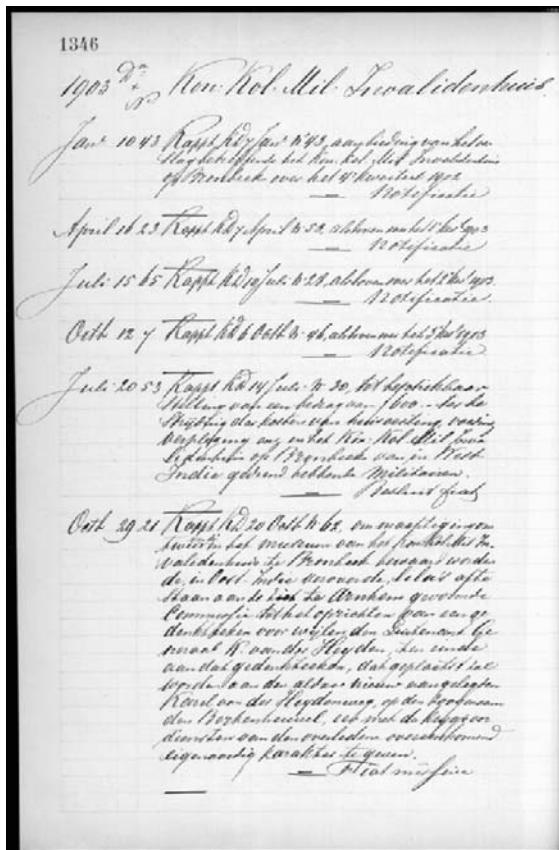 1346
1903 Dm + No Kon. Kol. Mil. Invalidenhuis.
Jan. 10 43 Rappt Kd 7 Jan. No 43, aanbieding van het ver
slag betreffende het Kon. Kol. Mil. Invalidenhuis
op Bronbeek over het 4e kwartaal 1902
Notificatie
April 16 23 Rappt Kd 7 April No 50, alsboven over het 1e kw. 1903
Notificatie
Juli 15 65 Rappt Kd 10 Juli No 28, alsboven over het 2e kw. 1903.
Notificatie.
Octb 12 7 Rappt Kd 6 Octb No 46, alsboven over het 3e kw. 1903
Notificatie
Juli 20 53 Rappt Kd 14 Juli No 30, tot beschikbaar
stelling van een bedrag van f 600.- ter be
strijding der kosten van huisvesting, voeding
verpleging enz. in het Kon. Kol. Mil. Inva
lidenhuis op Bronbeek van, in West
Indie gediend hebbende Militairen.
Besluit fiat
Octb 29 21 Rappt Kd 20 Octb No 62, om machtiging om
twee in het museum van het Kon. Kol. Mil. In
validenhuis te Bronbeek bewaard worden
de, in Oost Indie veroverde, lela's af te
staan aan de te Arnhem gevormde
Commissie tot het oprichten van een ge
denkteeken voor wijlen den Luitenant Ge
neraal K. van der Heyden, ten einde
aan dat gedenkteeken, dat geplaatst zal
worden aan den aldaar nieuw aangelegden
Karel van der Heydenweg, op den
den een met de krijgsver
diensten van den overledene overeenkomend
eigenaardig karakter te geven.
Fiat missive